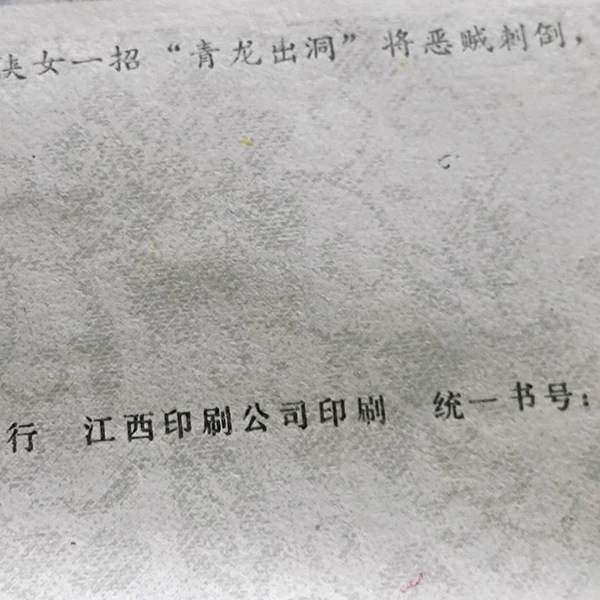 侠女一招“青龙出洞”将恶贼刺倒，
行 江西印刷公司印刷 统一书号：